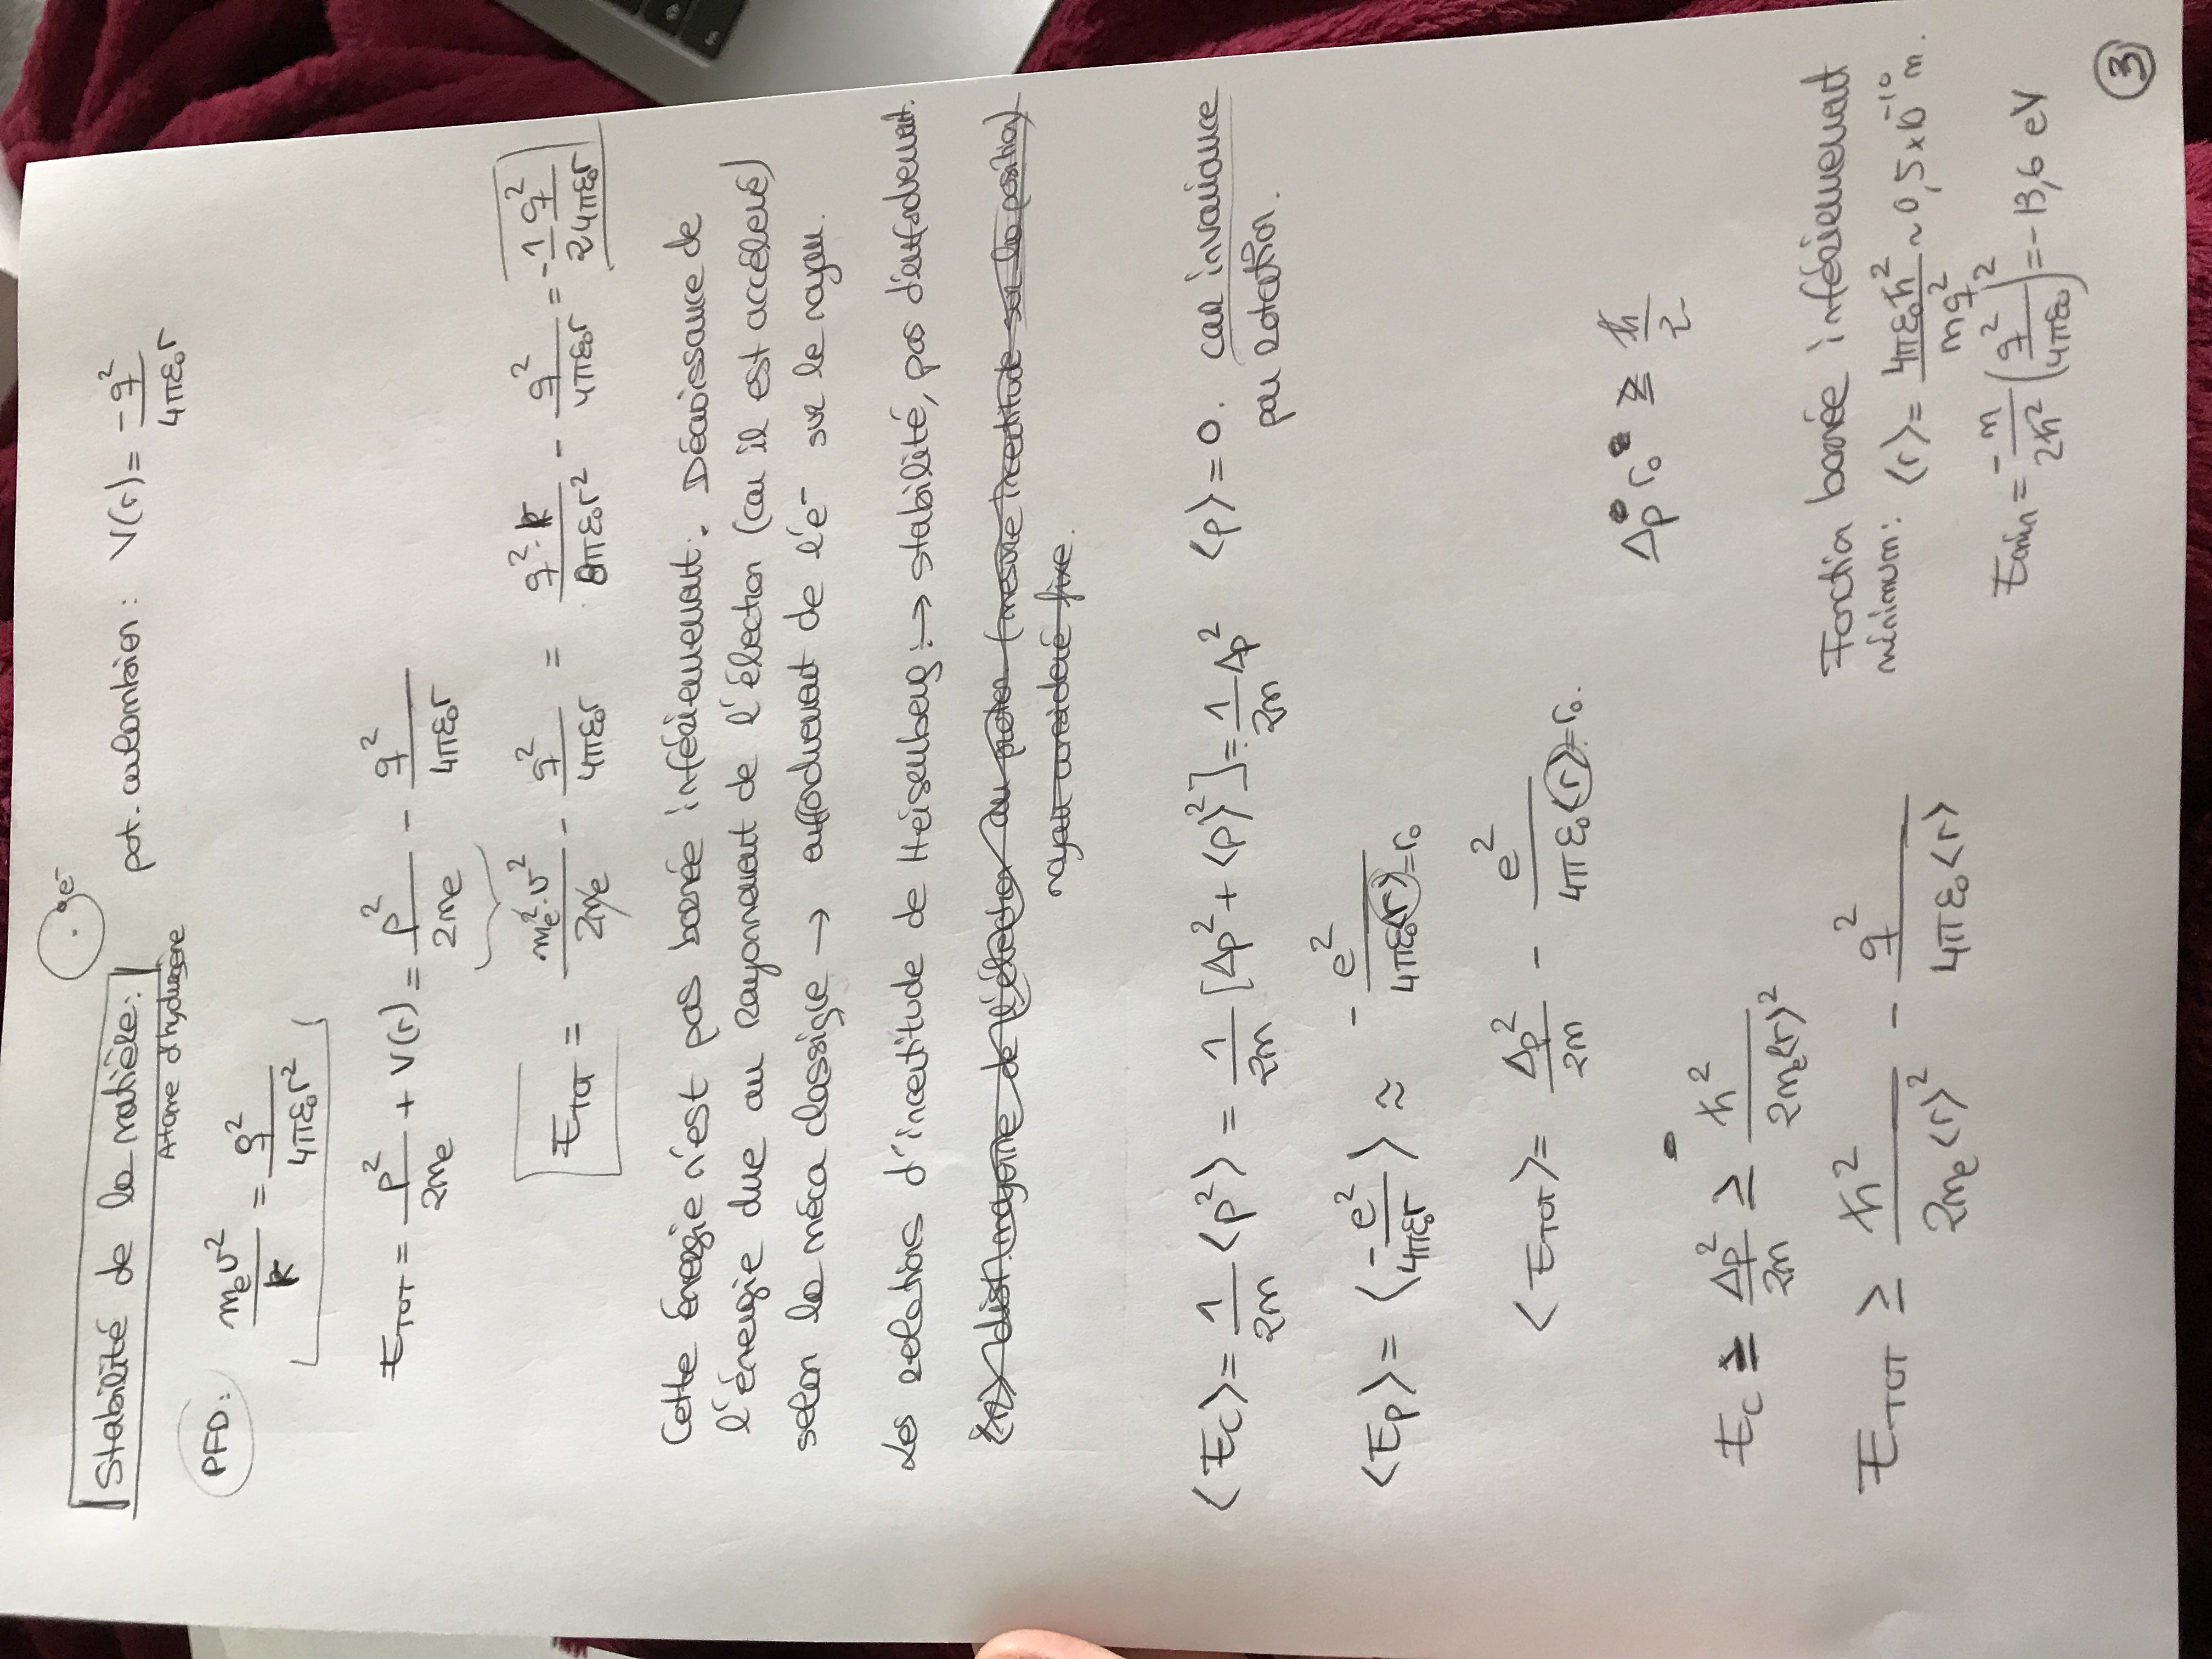 e⁻
Stabilité de la matière: pot. coulombien: V(r) = -q²/4πε₀r
Atome d'hydrogène
PFD: mₑv²/r = q²/4πε₀r²
E_TOT = p²/2mₑ + V(r) = p²/2mₑ - q²/4πε₀r
E_TOT = mₑ²·v²/2mₑ - q²/4πε₀r = q²·r/8πε₀r² - q²/4πε₀r = -1/2 q²/4πε₀r
Cette énergie n'est pas bornée inférieurement. Décroissance de
l'énergie due au rayonnement de l'électron (car il est accéléré)
selon la méca classique → effondrement de l'e⁻ sur le noyau.
Les relations d'incertitude de Heisenberg: → stabilité, pas d'effondrement.
⟨r⟩ dist. moyenne de l'électron au proton (mesure incertitude sur la position)
noyau considéré fixe.
⟨E_C⟩ = 1/2m ⟨p²⟩ = 1/2m [Δp² + ⟨p⟩²] = 1/2m Δp² ⟨p⟩ = 0. car invariance
par rotation.
⟨E_p⟩ = ⟨-e²/4πε₀r⟩ ≈ -e²/4πε₀⟨r⟩ = r₀
⟨E_TOT⟩ = Δp²/2m - e²/4πε₀⟨r⟩ = r₀.
Δp r₀ ≥ ħ/2
E_C ≥ Δp²/2m ≥ ħ²/2mₑ⟨r⟩²
E_TOT ≥ ħ²/2mₑ⟨r⟩² - q²/4πε₀⟨r⟩
Fonction bornée inférieurement
minimum: ⟨r⟩ = 4πε₀ħ²/mq² ~ 0,5×10⁻¹⁰ m.
Emin = -m/2ħ² (q²/4πε₀)² = -13,6 eV
3